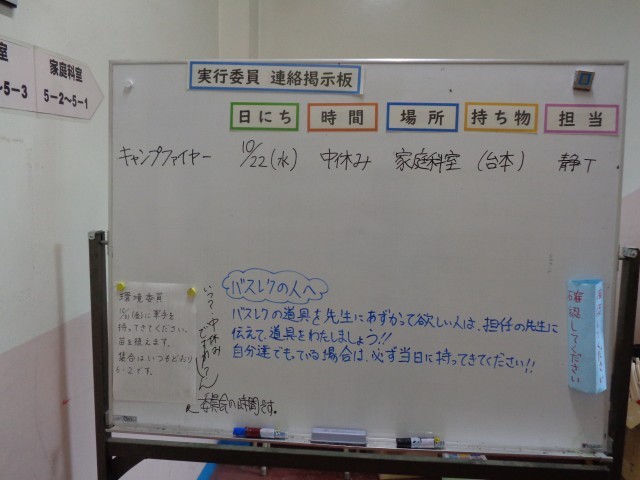 室
～5－3
家庭科室
5－2～5－1
実行委員 連絡掲示板
日にち 時間 場所 持ち物 担当
キャンプファイヤー 10/22(水) 中休み 家庭科室 (台本) 静T
バスレクの人へ
バスレクの道具を先生にあずかって欲しい人は、担任の先生に
伝えて、道具をわたしましょう!!
自分達でもっている場合は、必ず当日に持ってきてください!!
環境委員
軍手を
持ってきてください。
苗を植えます。
集合はいつもどおり
6－2です。
いつ？中休み
ですか？
委員会の時間です。
確認してください